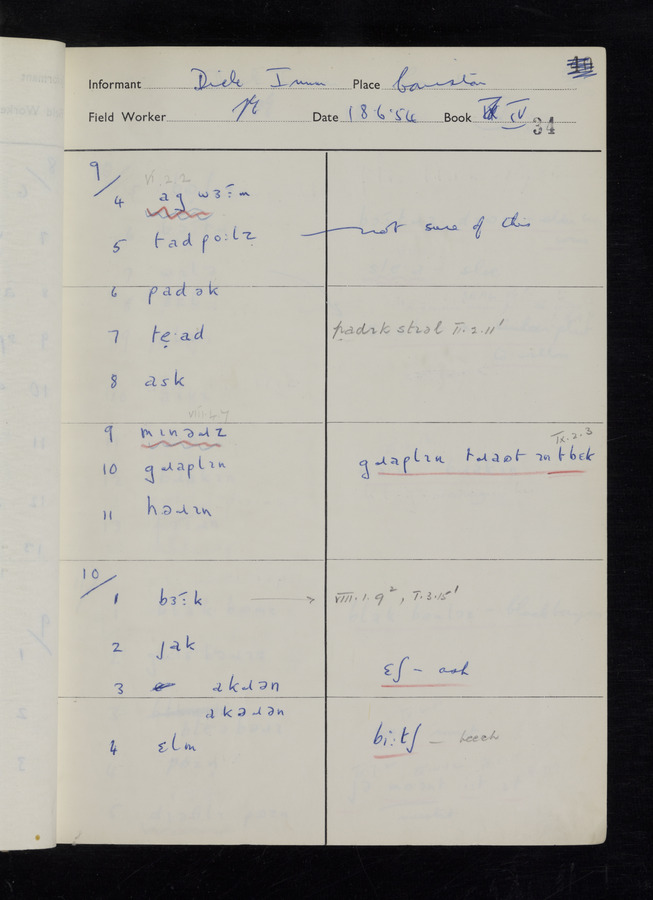 Informant Dick Place Coniston
Field Worker Date 18.6.54 Book IV 34
9/ VI.2.2
4 ag wɜːm
5 tadpoːlz — not sure of this
6 padək
7 tẹ·ad padɪk stɪəl II.2.11'
8 ask
VIII.4.7
9 mɪnəɹz
IX.2.3
10 gɹaplɪn gɹaplɪn tɹaʊt ɪn tbɛk
11 həɹɪn
10/
1 bɜːk → VIII.1.9², I.3.15'
2 jak
3 akɹən ɛʃ – ash
akəɹən
4 ɛlm biːtʃ – beech